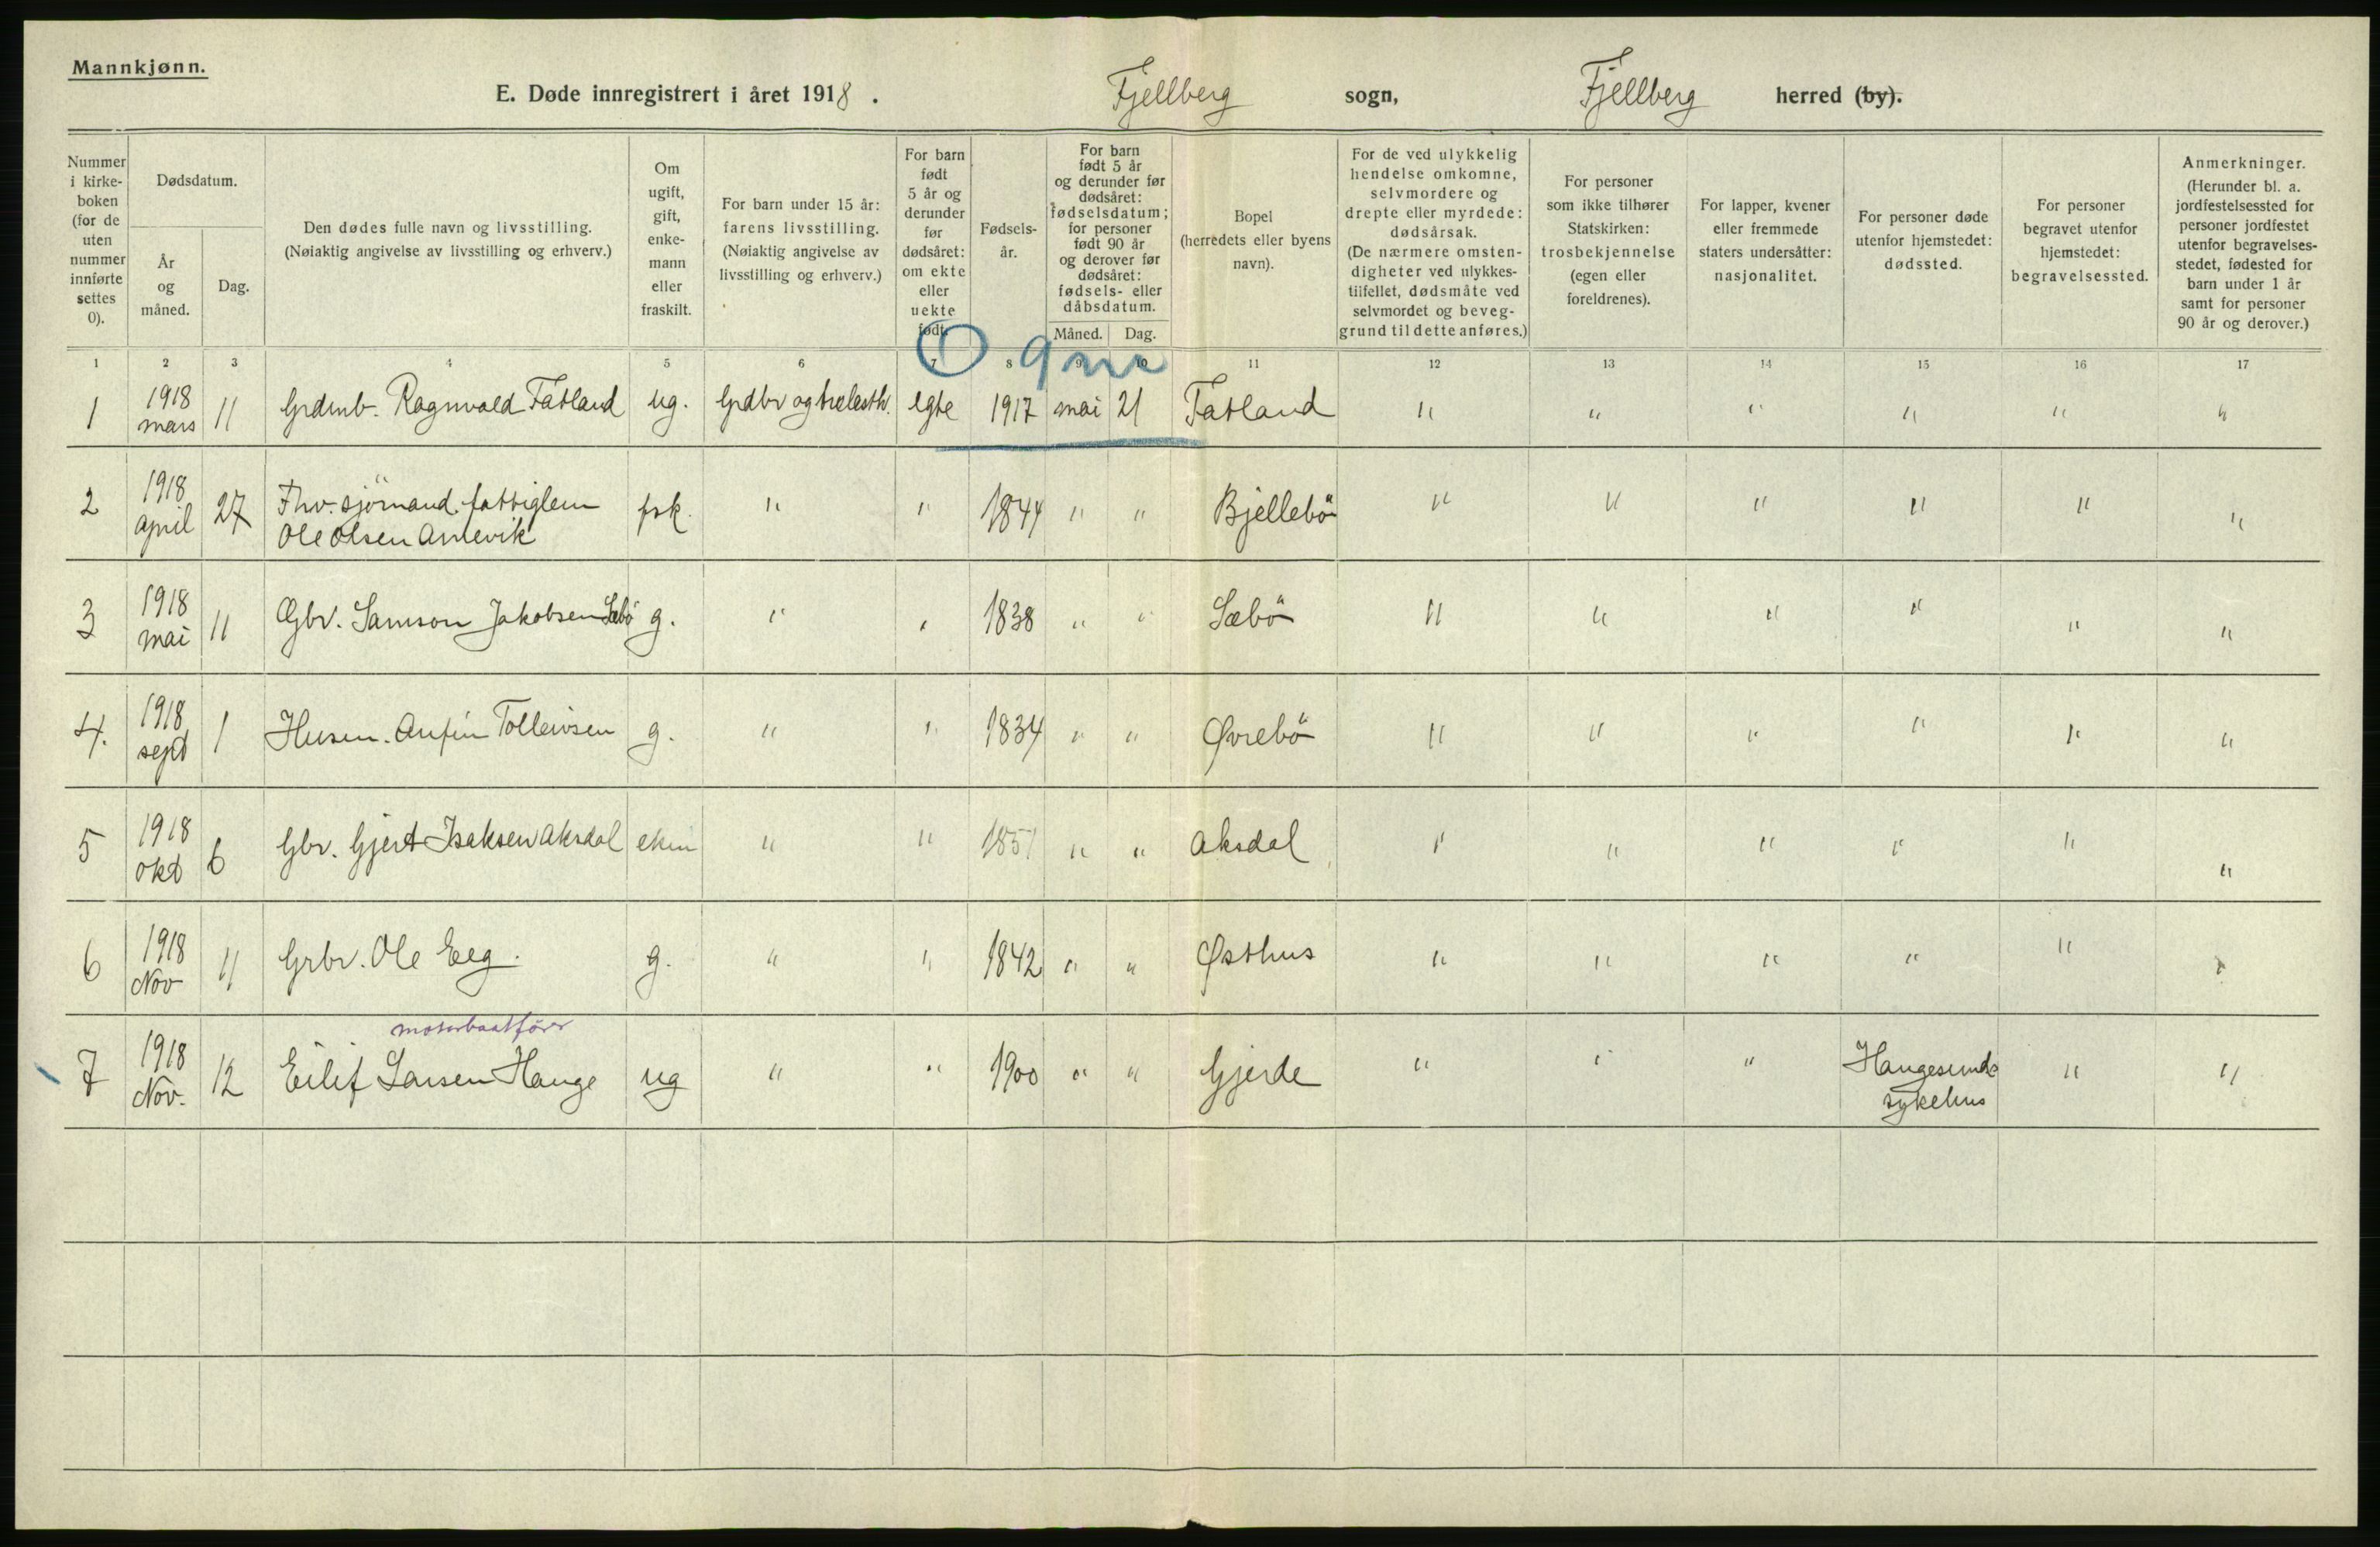 Mannkjønn.
E. Døde innregistrert i året 1918. Fjellberg sogn, Fjellberg herred (by).
Nummer i kirke-boken (for de uten nummer innførte settes 0).
Dødsdatum.
År og måned.
Dag.
Den dødes fulle navn og livsstilling.
(Nøiaktig angivelse av livsstilling og erhverv.)
Om ugift, gift, enke-mann eller fraskilt.
For barn under 15 år: farens livsstilling.
(Nøiaktig angivelse av livsstilling og erhverv.)
For barn født 5 år og derunder før dødsåret: om ekte eller uekte født.
Fødsels-år.
For barn født 5 år og derunder før dødsåret: fødselsdatum; for personer født 90 år og derover før dødsåret: fødsels- eller dåbsdatum.
Måned. Dag.
Bopel (herredets eller byens navn).
For de ved ulykkelig hendelse omkomne, selvmordere og drepte eller myrdede: dødsårsak.
(De nærmere omsten-digheter ved ulykkes-tilfellet, dødsmåte ved selvmordet og beveg-grund til dette anføres.)
For personer som ikke tilhører Statskirken: trosbekjennelse (egen eller foreldrenes).
For lapper, kvener eller fremmede staters undersåtter: nasjonalitet.
For personer døde utenfor hjemstedet: dødssted.
For personer begravet utenfor hjemstedet: begravelsessted.
Anmerkninger.
(Herunder bl. a. jordfestelsessted for personer jordfestet utenfor begravelses-stedet, fødested for barn under 1 år samt for personer 90 år og derover.)
1 2 3 4 5 6 7 8 9 10 11 12 13 14 15 16 17
1 9 m
1 1918 mars 11 Ragnvald Fatland ug. egte 1917 mai 21 Fatland " " " " " "
2 1918 april 27 Fhv. sjömand. fattiglem
Ole Olsen fsk. " " 1844 " " Bjellebö " " " " " "
3 1918 mai 11 Gbr. Samson Jakobsen Sæbö g. " " 1838 " " Sæbö " " " " " "
4. 1918 sept 1 Husm. Anfin Tolleivsen g. " " 1834 " " Øvrebö " " " " " "
5 1918 okt 6 Gbr. Gjert Isaksen Aksdal ekm " " 1851 " " Aksdal " " " " " "
6 1918 Nov 11 Grbr. Ole Eeg. g. " " 1842 " " Østhus " " " " " "
motorbaatförer
7 1918 Nov. 12 Eilif Larsen Hauge ug " " 1900 " " Gjerde " " " Haugesunds sykehus " "